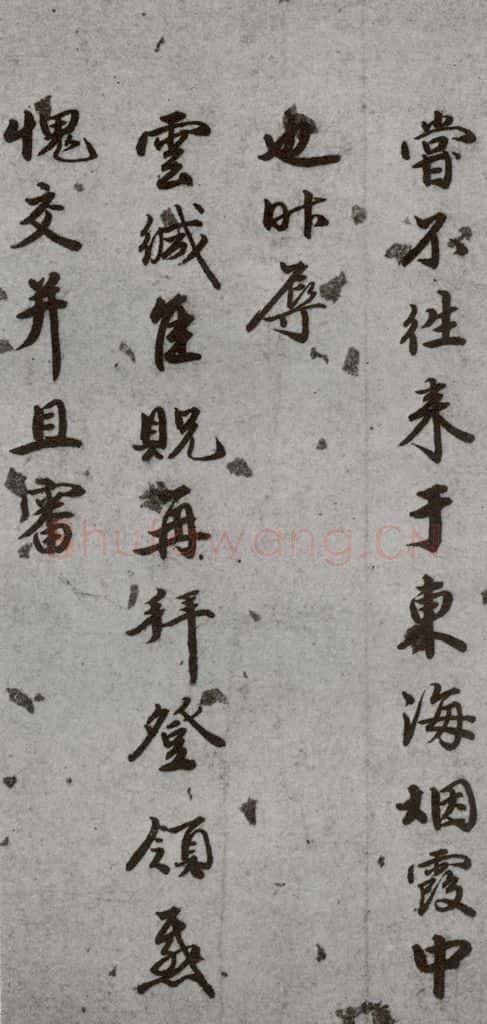 嘗不往来于東海烟霞中
也昨辱
雲緘隹貺再拜登領感
愧交并且審
Shufawang.CN